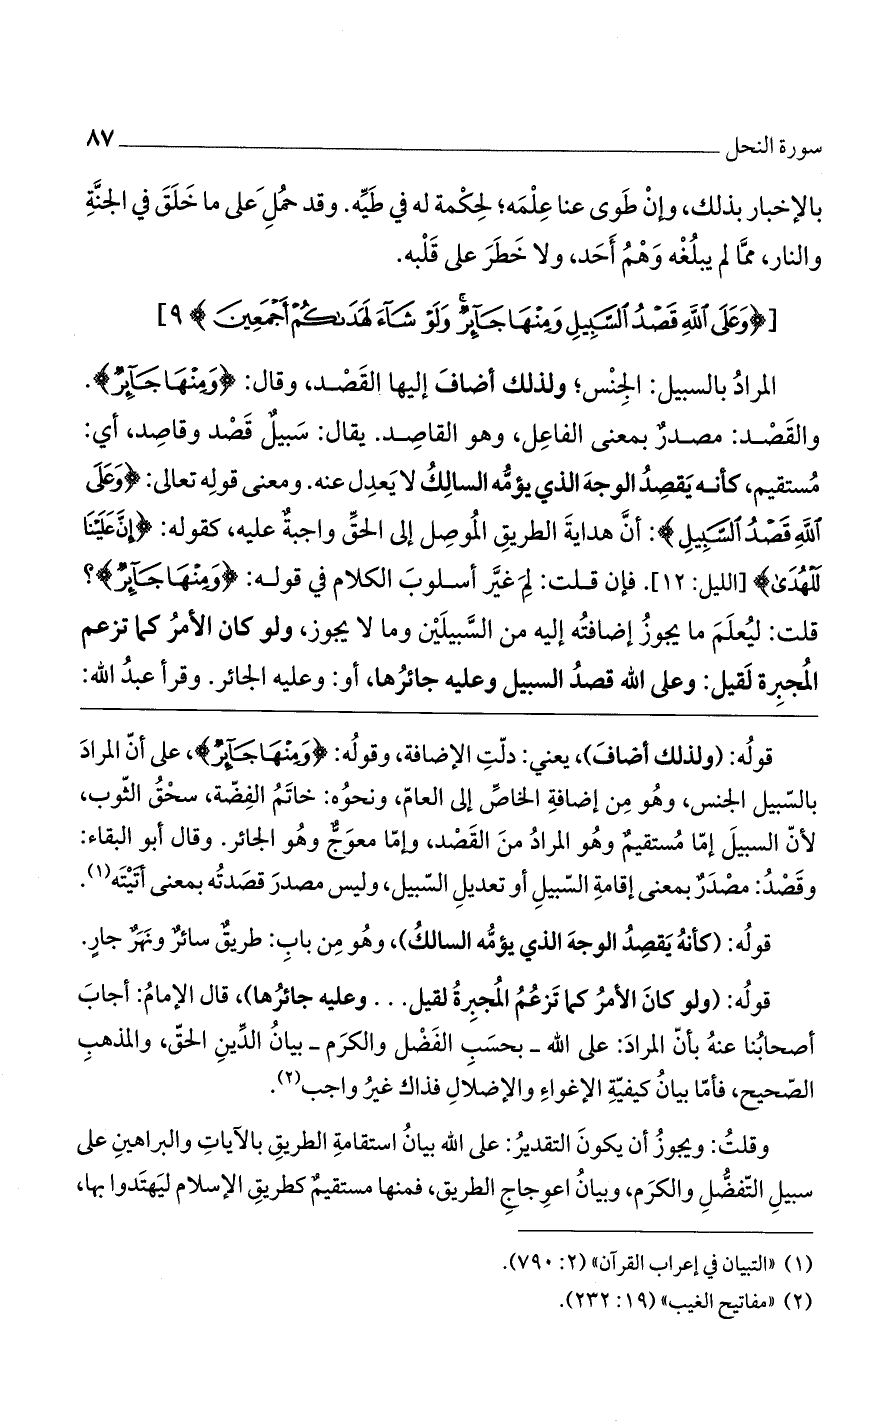 سورة النحل ٨٧
بالإخبار بذلك، وإنْ طَوى عنا عِلْمَه؛ لحِكْمة له في طَيِّه. وقد حمُلِ َعلى ما خَلَقَ في الجنَّةِ
والنار، ممَّا لم يبلُغْه وَهْمُ أَحَد، ولا خَطَرَ على قَلْبه.
[﴿وَعَلَى ٱللَّهِ قَصْدُ ٱلسَّبِيلِ وَمِنْهَا جَآئِرٌ ۚ وَلَوْ شَآءَ لَهَدَىٰكُمْ أَجْمَعِينَ﴾ ٩]
المرادُ بالسبيل: الجِنْس؛ ولذلك أضافَ إليها القَصْد، وقال: ﴿وَمِنْهَا جَآئِرٌ﴾.
والقَصْد: مصدرٌ بمعنى الفاعِل، وهو القاصِد. يقال: سَبيلٌ قَصْد وقاصِد، أي:
مُستقيم، كأنه يَقصِدُ الوجهَ الذي يؤمُّه السالكُ لا يَعدِل عنه. ومعنى قولِه تعالى: ﴿وَعَلَى
ٱللَّهِ قَصْدُ ٱلسَّبِيلِ﴾: أنَّ هدايةَ الطريقِ المُوصِل إلى الحقِّ واجبةٌ عليه، كقوله: ﴿إِنَّ عَلَيْنَا
لَلْهُدَىٰ﴾ [الليل: ١٢]. فإن قلت: لِمَ غيَّر أسلوبَ الكلام في قوله: ﴿وَمِنْهَا جَآئِرٌ﴾؟
قلت: ليُعلَمَ ما يجوزُ إضافتُه إليه من السَّبيلَيْن وما لا يجوز، ولو كان الأمرُ كما تزعم
المُجبِرة لَقيل: وعلى الله قصدُ السبيل وعليه جائرُها، أو: وعليه الجائر. وقرأ عبدُ الله:
قولُه: (ولذلك أضافَ)، يعني: دلّتِ الإضافة، وقولُه: ﴿وَمِنْهَا جَآئِرٌ﴾، على أنّ المرادَ
بالسّبيل الجنس، وهُو مِن إضافةِ الخاصِّ إلى العامّ، ونحوُه: خاتَمُ الفِضّة، سحْقُ الثّوب،
لأنّ السبيلَ إمّا مُستقيمٌ وهُو المرادُ منَ القَصْد، وإمّا معوَجٌّ وهُو الجائر. وقال أبو البقاء:
وقَصْدُ: مصْدَرٌ بمعنى إقامةِ السّبيلِ أو تعديلِ السّبيل، وليس مصدرَ قصَدتُه بمعنى أتَيْتَه(١).
قولُه: (كأنهُ يَقصِدُ الوجهَ الذي يؤمُّه السالكُ)، وهُو مِن بابِ: طريقٌ سائرٌ ونهَرٌ جارٍ.
قولُه: (ولو كانَ الأمرُ كما تَزعُمُ المُجبِرةُ لقيل... وعليه جائرُها)، قال الإمامُ: أجابَ
أصحابُنا عنهُ بأنّ المرادَ: على الله - بحسَبِ الفَضْل والكرَم - بيانُ الدِّينِ الحقّ، والمذهبِ
الصّحيح، فأمّا بيانُ كيفيّةِ الإغواءِ والإضلالِ فذاك غيرُ واجب(٢).
وقلتُ: ويجوزُ أن يكونَ التقديرُ: على الله بيانُ استقامةِ الطريقِ بالآياتِ والبراهينِ على
سبيلِ التّفضُّلِ والكرَم، وبيانُ اعوِجاجِ الطريق، فمنها مستقيمٌ كطريقِ الإسلام ليَهتَدوا بها،
(١) «التبيان في إعراب القرآن» (٢: ٧٩٠).
(٢) «مفاتيح الغيب» (١٩: ٢٣٢).